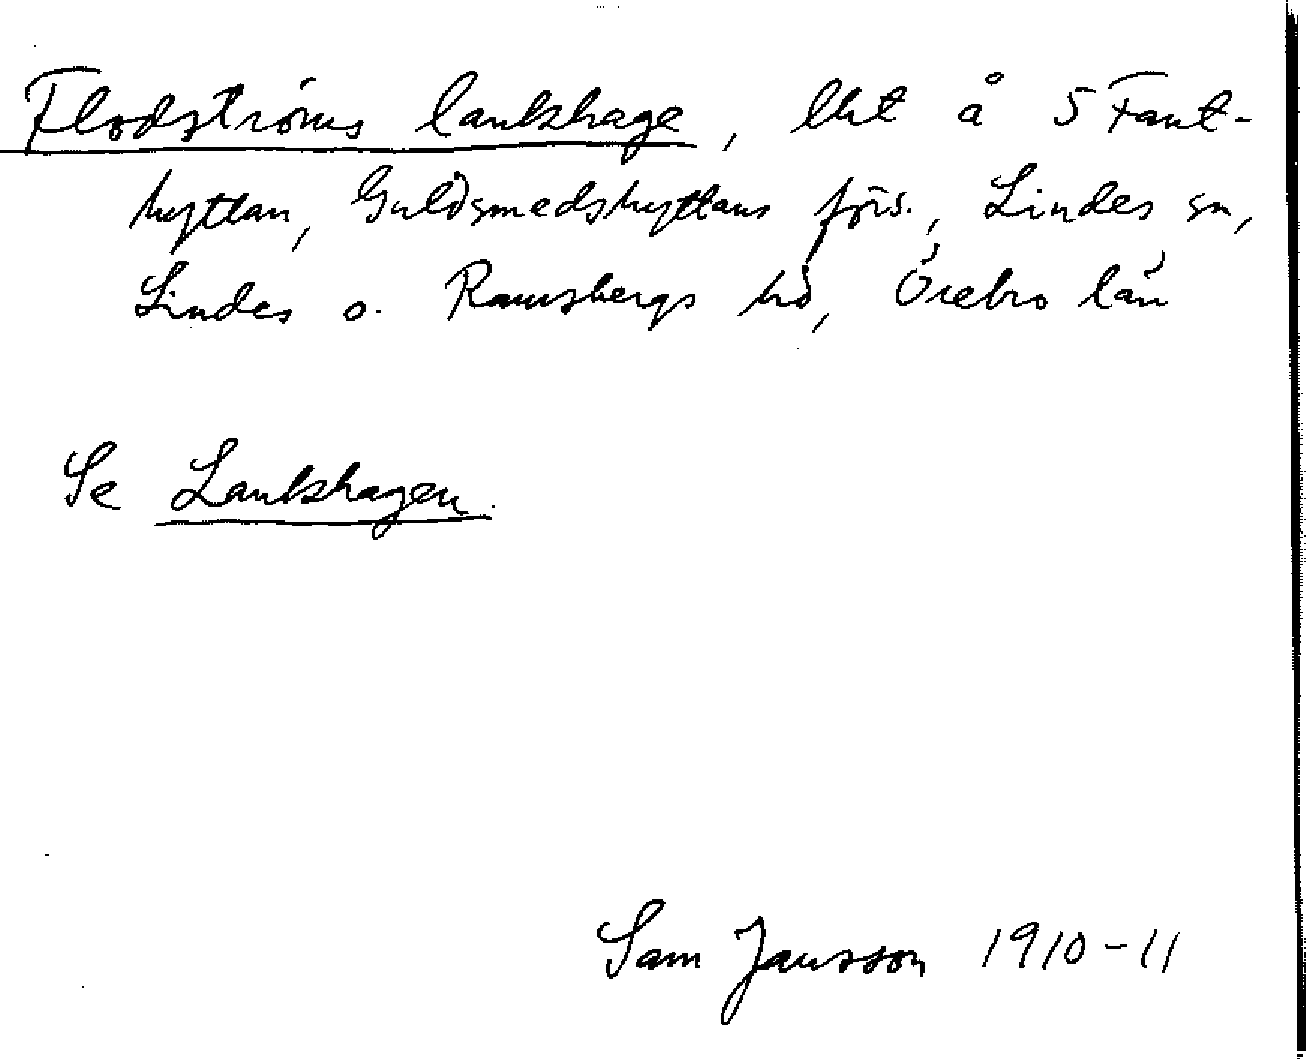 Flodströms lankshage, lht å 5 Fant-
hyttan, Guldsmedshyttans förs., Lindes sn,
Lindes o. Ramsbergs hd, Örebro län
Se Lankshagen.
Sam Jansson 1910-11